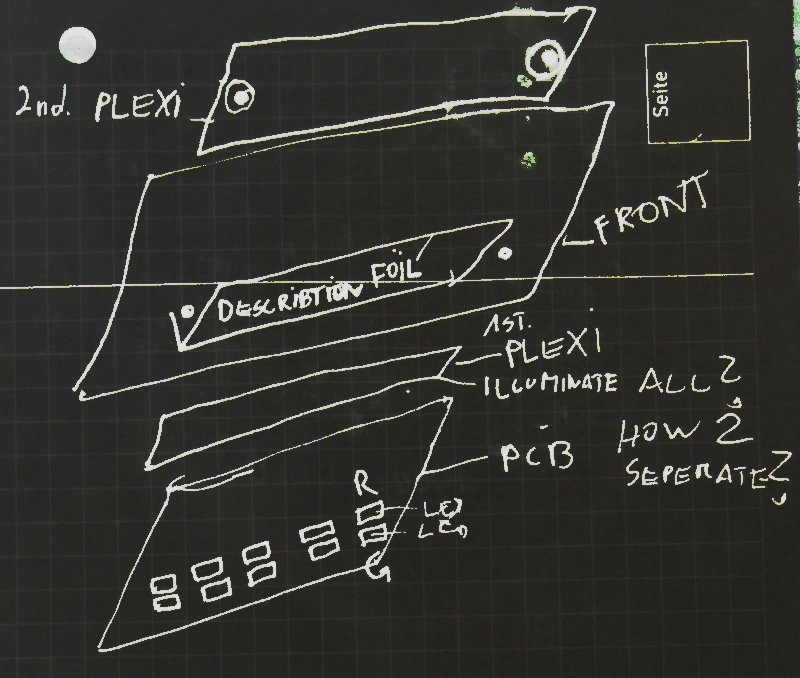 2nd. PLEXi
Seite
FRONT
DESCRIBTION FOIL
1ST.
PLEXI
ILLUMINATE ALL?
HOW 2
SEPERATE?
PCB
R
LED
LED
G